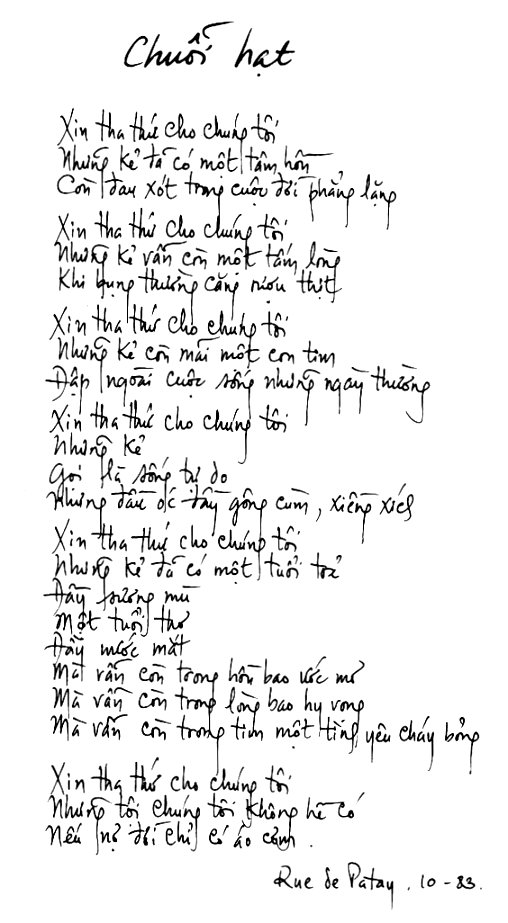 Chuỗi hạt
Xin tha thứ cho chúng tôi
Những kẻ đã có một tâm hồn
Còn đau xót trong cuộc đời phẳng lặng
Xin tha thứ cho chúng tôi
Những kẻ vẫn còn một tấm lòng
Khi bụng thường căng rượu thịt
Xin tha thứ cho chúng tôi
Những kẻ còn mãi một con tim
Đập ngoài cuộc sống những ngày thường
Xin tha thứ cho chúng tôi
Những kẻ
Gọi là sống tự do
Nhưng đầu óc đầy gông cùm, xiềng xích
Xin tha thứ cho chúng tôi
Những kẻ đã có một tuổi trẻ
Đầy sương mù
Một tuổi thơ
Đầy nước mắt
Mà vẫn còn trong hồn bao ước mơ
Mà vẫn còn trong lòng bao hy vọng
Mà vẫn còn trong tim một tình yêu cháy bỏng
Xin tha thứ cho chúng tôi
Những tội chúng tôi không hề có
Nếu đời chỉ có áo cơm.
Rue de Patay. 10-83.